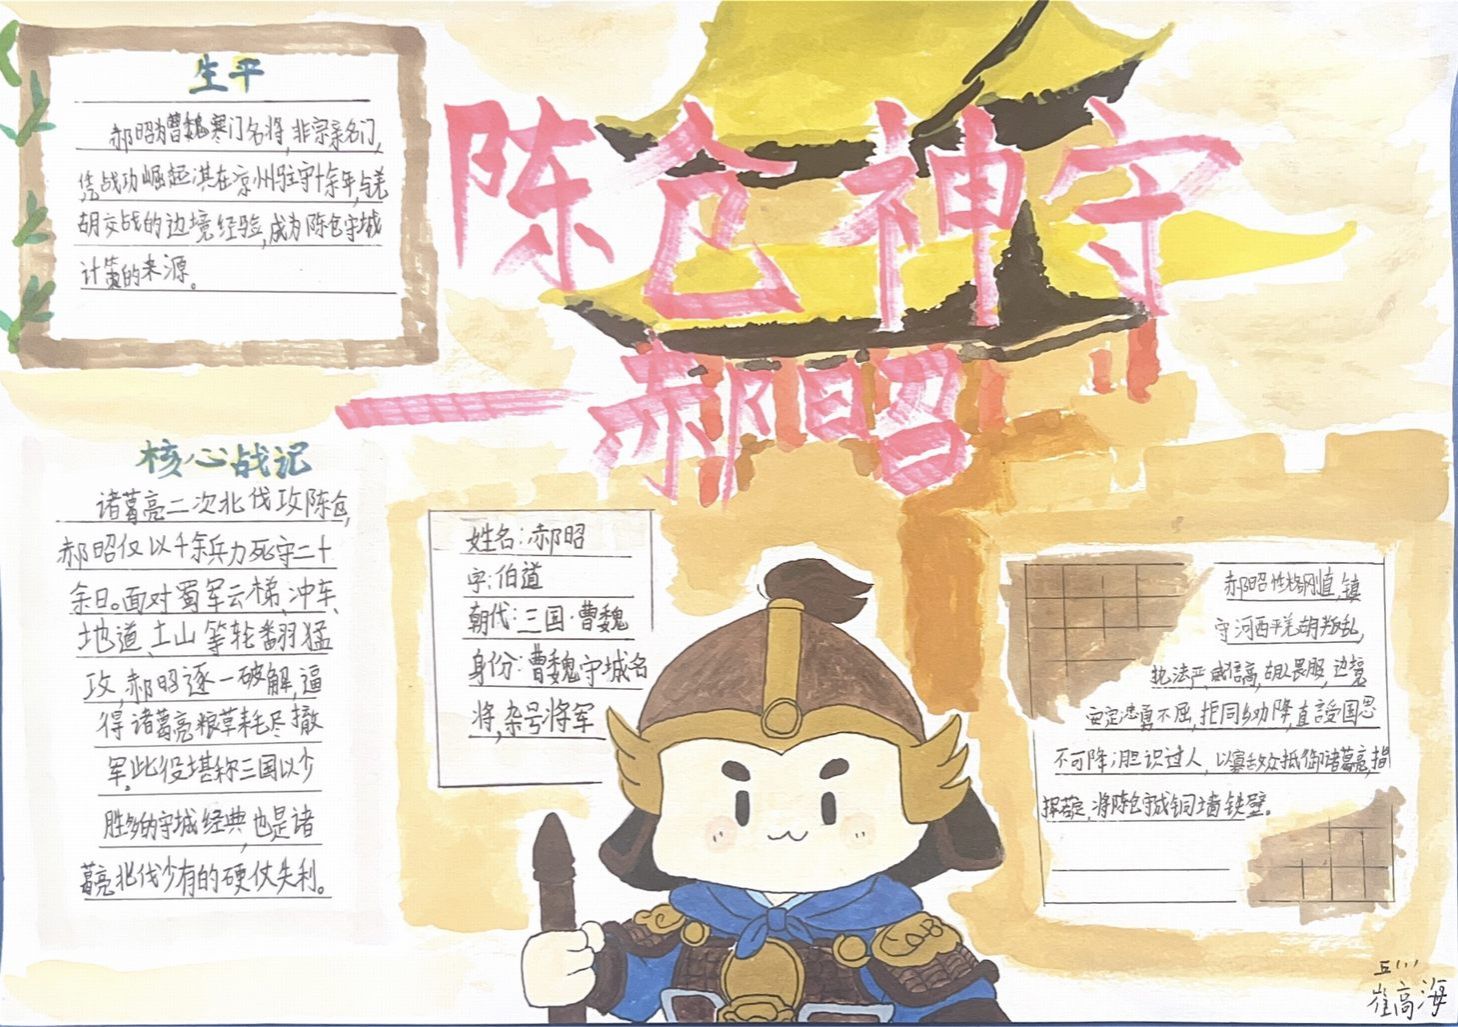 陈仓神守
——郝昭
生平
郝昭为曹魏寒门名将,非宗亲名门,
凭战功崛起;其在凉州驻守十余年,与羌
胡交战的边境经验,成为陈仓守城
计策的来源。
核心战记
诸葛亮二次北伐攻陈仓,
郝昭仅以千余兵力死守二十
余日。面对蜀军云梯、冲车、
地道、土山等轮翻猛
攻,郝昭逐一破解,逼
得诸葛亮粮草耗尽撤
军。此役堪称三国以少
胜多的守城经典,也是诸
葛亮北伐少有的硬仗失利。
姓名:郝昭
字:伯道
朝代:三国·曹魏
身份:曹魏守城名
将,杂号将军
郝昭性格刚直,镇
守河西平羌胡叛乱,
执法严,威信高,胡人畏服,边境
安定忠勇不屈,拒同乡劝降,直言受国恩
不可降;胆识过人,以寡敌众抵御诸葛亮,指
挥若定,将陈仓守成铜墙铁壁。
崔高海